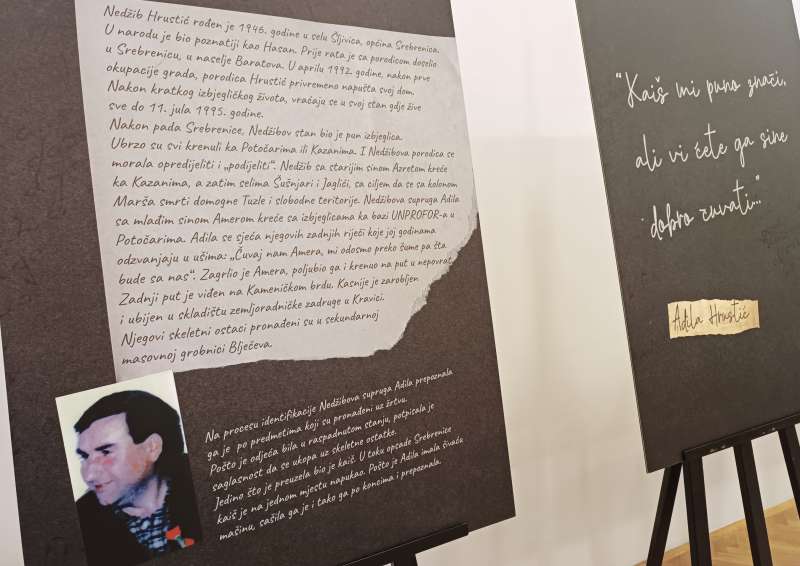 Nedžib Hrustić rođen je 1946. godine u selu Šljivica, općina Srebrenica.
U narodu je bio poznatiji kao Hasan. Prije rata je sa porodicom doselio
u Srebrenicu, u naselje Baratova. U aprilu 1992. godine, nakon prve
okupacije grada, porodica Hrustić privremeno napušta svoj dom.
Nakon kratkog izbjegličkog života, vraćaju se u svoj stan gdje žive
sve do 11. jula 1995. godine.
Nakon pada Srebrenice, Nedžibov stan bio je pun izbjeglica.
Ubrzo su svi krenuli ka Potočarima ili Kazanima. I Nedžibova porodica se
morala opredijeliti i „podijeliti“. Nedžib sa starijim sinom Azretom kreće
ka Kazanima, a zatim selima Šušnjari i Jaglići, sa ciljem da se sa kolonom
Marša smrti domogne Tuzle i slobodne teritorije. Nedžibova supruga Adila
sa mlađim sinom Amerom kreće sa izbjeglicama ka bazi UNPROFOR-a u
Potočarima. Adila se sjeća njegovih zadnjih riječi koje joj godinama
odzvanjaju u ušima: „Čuvaj nam Amera, mi odosmo preko šume pa šta
bude sa nas“. Zagrlio je Amera, poljubio ga i krenuo na put u nepovrat.
Zadnji put je viđen na Kameničkom brdu. Kasnije je zarobljen
i ubijen u skladištu zemljoradničke zadruge u Kravici.
Njegovi skeletni ostaci pronađeni su u sekundarnoj
masovnoj grobnici Blječeva.
Na procesu identifikacije Nedžibova supruga Adila prepoznala
ga je po predmetima koji su pronađeni uz žrtvu.
Pošto je odjeća bila u raspadnutom stanju, potpisala je
saglasnost da se ukopa uz skeletne ostatke.
Jedino što je preuzela bio je kaiš. U toku opsade Srebrenice
kaiš je na jednom mjestu napukao. Pošto je Adila imala šivaću
mašinu, sašila ga je i tako ga po koncima i prepoznala.
“Kaiš mi puno znači,
ali vi ćete ga sine
dobro čuvati...”
Adila Hrustić